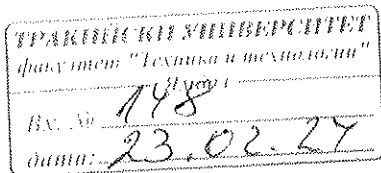 ТРАКИЙСКИ УНИВЕРСИТЕТ
факултет "Техника и технологии"
Ямбол
Вх. № 148
дата: 23.02.24